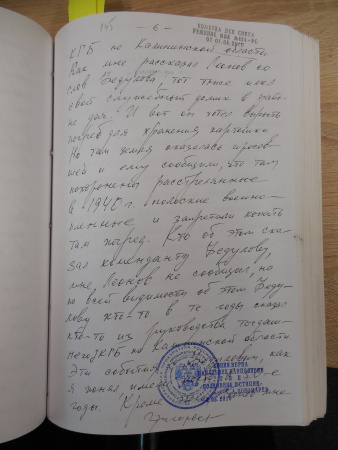 - 6 -
КОПИЯ
КГБ по Калининской области
Как мне рассказал Леонов со
слов Федулова, тот тоже имел
свой служебный домик в райо-
не дач. И вот он хотел вырыть
погреб для хранения картофеля
Но там земля оказалась просев-
шей и ему сообщили, что там
похоронены расстрелянные
в 1940 г. польские военно-
пленные и запретили копать
там погреб. Кто об этом ска-
зал коменданту Федулову,
мне Леонов не сообщил, но
по всей видимости об этом Феду-
лову кто-то в те годы сказал
кто-то из руководства тогдаш-
него КГБ по Калининской области
Эти события как
я понял имели
годы. Кроме мне